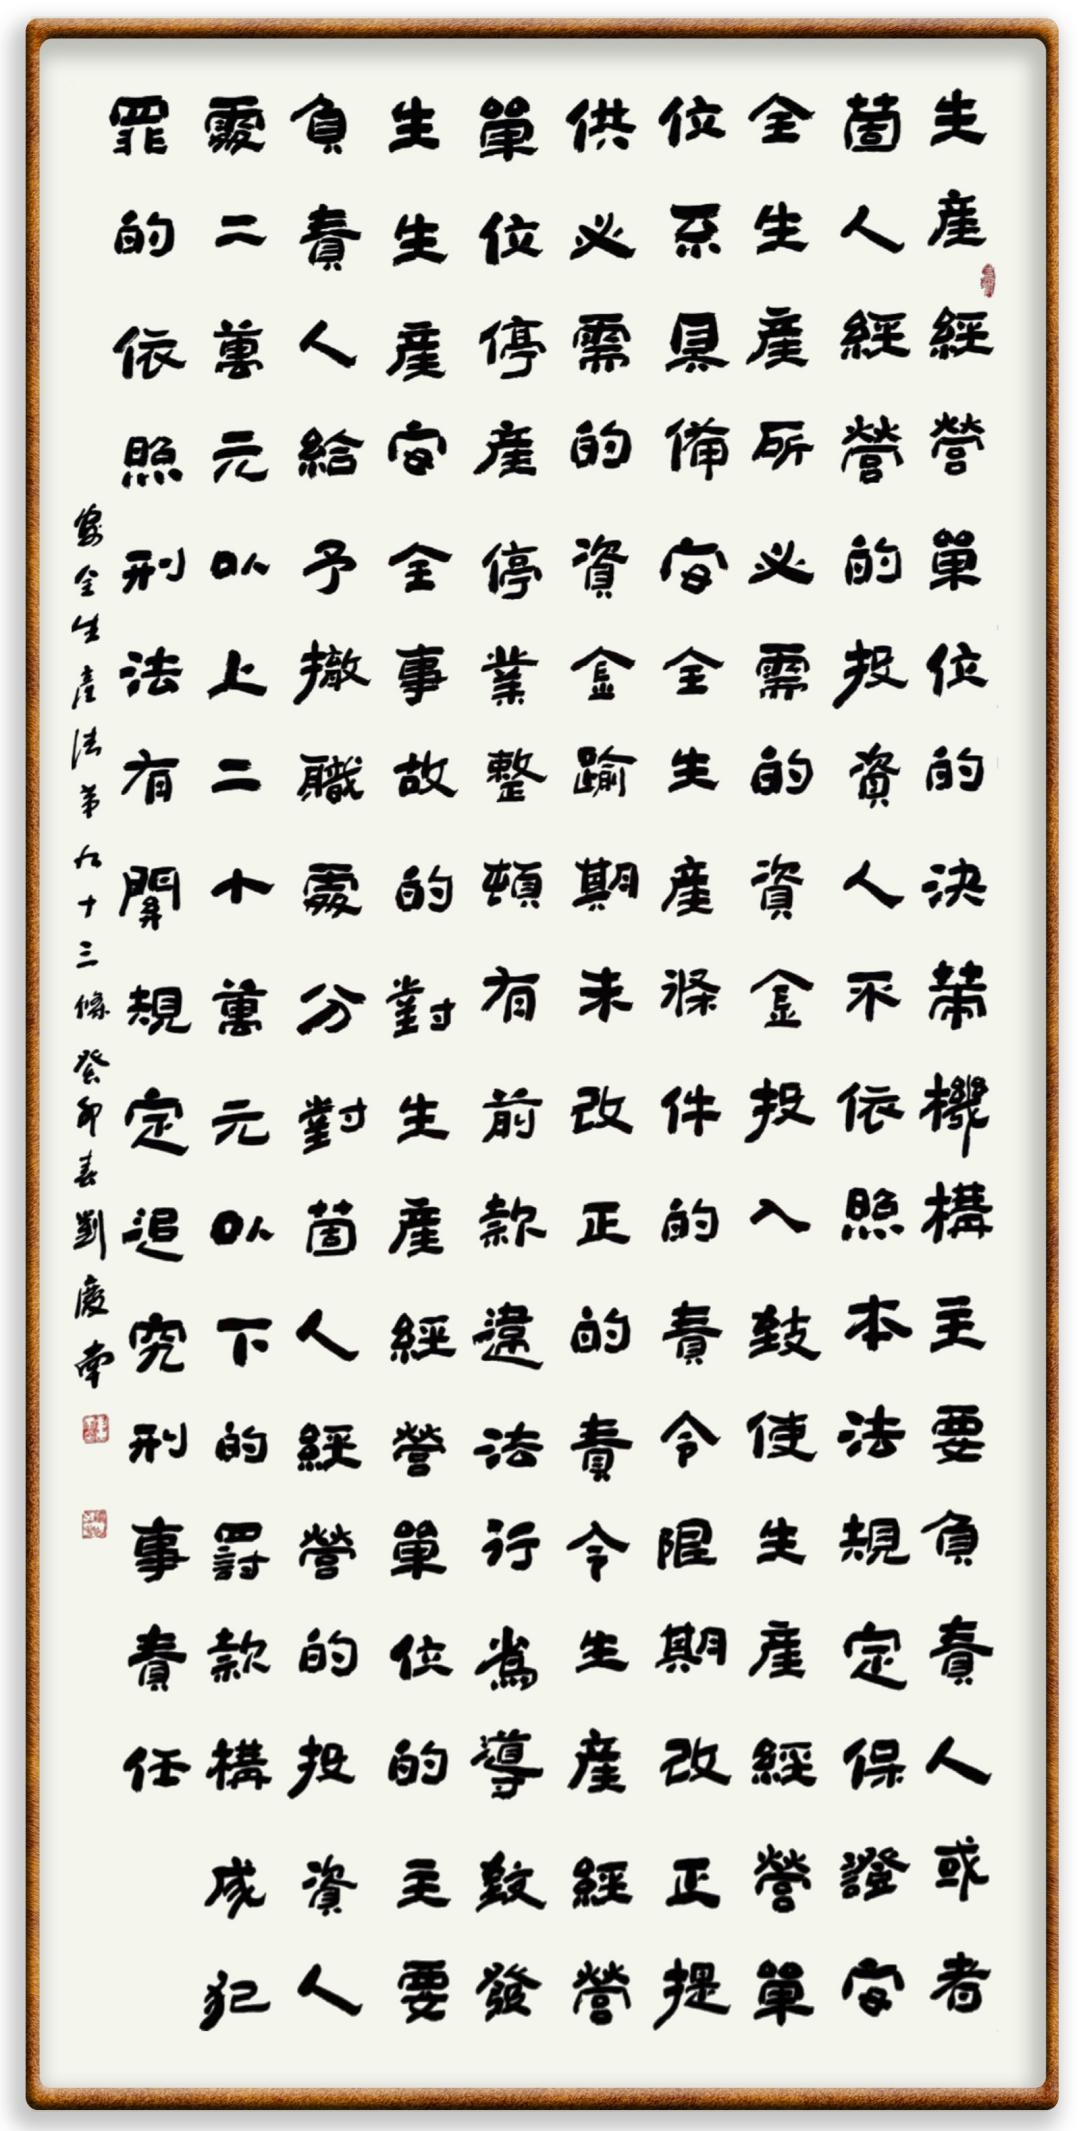 生產經營單位的決策機構主要負責人或者
箇人經營的投資人不依照本法規定保證安
全生產所必需的資金投入致使生產經營單
位系具備安全生產條件的責令限期改正提
供必需的資金踰期未改正的責令生產經營
單位停產停業整頓有前款違法行為導致發
生生產安全事故的對生產經營單位的主要
負責人給予撤職處分對箇人經營的投資人
處二萬元以上二十萬元以下的罰款構成犯
罪的依照刑法有關規定追究刑事責任
安全生產法第九十三條癸卯春劉慶南